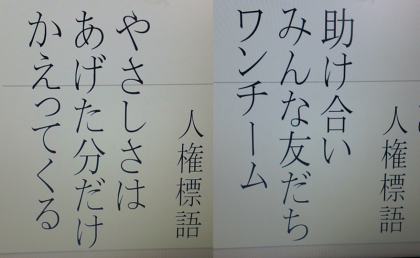 人権標語
助け合い
みんな友だち
ワンチーム
人権標語
やさしさは
あげた分だけ
かえってくる